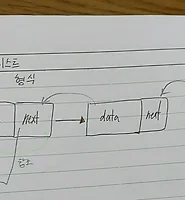 리스트
형식
next data next
참조